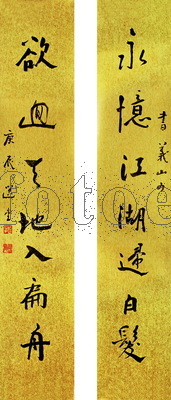 永憶江湖歸白髮
書義山句
欲迴天地入扁舟
庚辰
fotoe